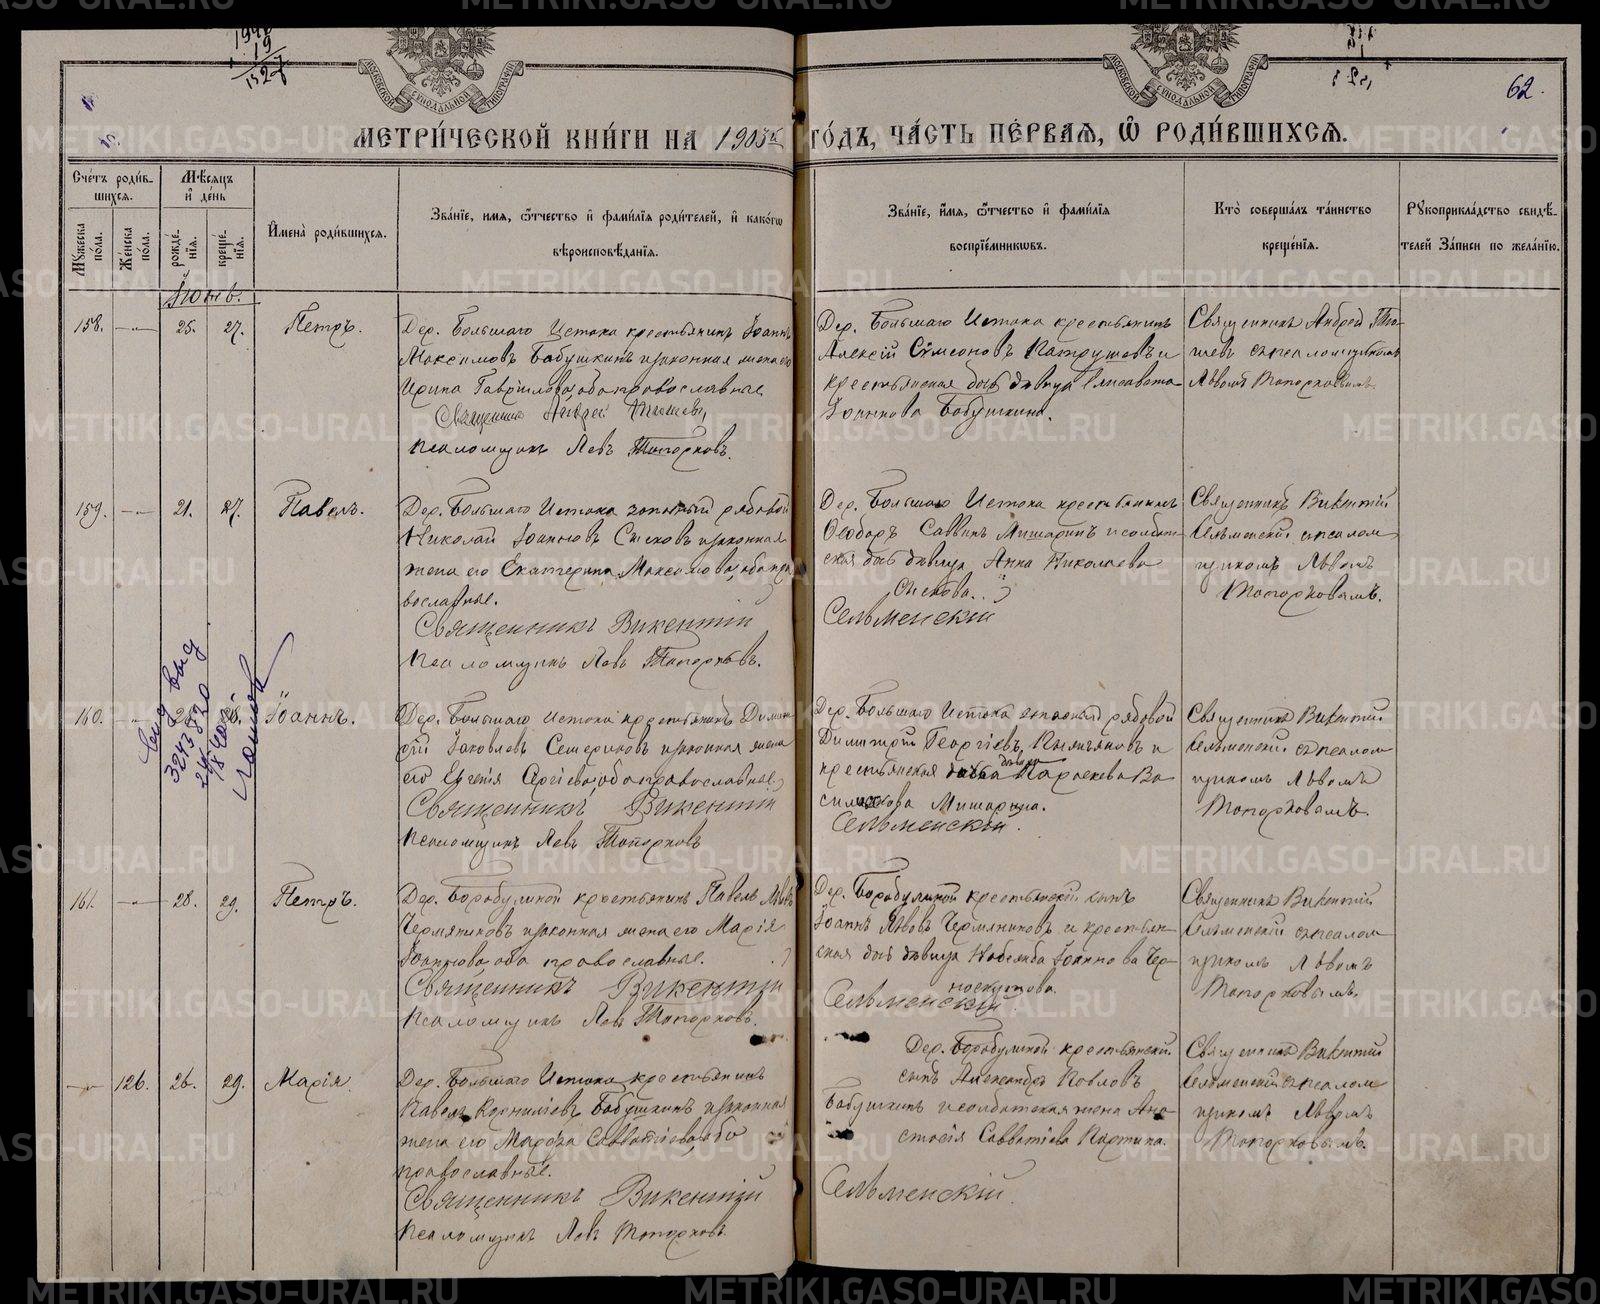 62.
МЕТРИ́ЧЕСКОЙ КНИ́ГИ НА 1903й ГО́ДЪ, ЧА́СТЬ ПЕ́РВАЯ, Ѿ РОДИ́ВШИХСЯ.
Сче́тъ роди́в-
шихся.
Мѣ́сяцъ
и҆ де́нь
Мꙋ́жеска
по́ла.
Же́нска
по́ла.
рожде́-
нїѧ.
креще́-
нїѧ.
И҆мена̀ роди́вшихся.
Зва́нїе, имя, ѻ҆́тчество и҆ фами́лїѧ роди́телей, и҆ како́гѡ
вѣроисповѣ́данїѧ.
Зва́нїе, и҆́мя, ѻ҆́тчество и҆ фами́лїѧ
воспрїе́мникѡвъ.
Кто̀ соверша́лъ та́инство
креще́нїѧ.
Рꙋкоприкла́дство свидѣ́-
телей за́писи по жела́нїю.
Іюнь.
158. 25. 27. Петръ.
Дер. Большаго Истока крестьянинъ Іоаннъ
Максимовъ Бабушкинъ и законная жена его
Ирина Гаврилова, оба православные
Священникъ Андрей
Псаломщикъ Левъ Топорковъ.
Дер. Большаго Истока крестьянинъ
Алексій Сѵмеоновъ Катрушевъ и
крестьянская дочь дѣвица Елисавета
Іоаннова Бабушкина.
Священникъ Андрей
псаломщикомъ
Львомъ Топорковымъ
159. 21. 27. Павелъ.
Дер. Большаго Истока запасный рядовой
Николай Іоанновъ Сысковъ и законная
жена его Екатерина Максимова, оба пра
вославные.
Священникъ Викентій
Псаломщикъ Левъ Топорковъ.
Дер. Большаго Истока крестьянинъ
Ѳеодоръ Саввинъ Мишаринъ и солдат-
ская дочь дѣвица Анна Николаева
Сыскова.
Сельменскій
Священникъ Викентій
Сельменскій съ псалом
щикомъ Львомъ
Топорковымъ.
160. Іоаннъ.
Дер. Большаго Истока крестьянинъ Димит
рій Іаковлевъ Семериковъ и законная жена
его Евгенія, оба православные
Священникъ Викентій
Псаломщикъ Левъ Топорковъ
Дер. Большаго Истока запасный рядовой
Димитрій Георгіевъ и
крестьянская дѣвица Параскева Ва
силькова Мишарина.
Сельменскій.
Священникъ Викентій
Сельменскій съ псалом
щикомъ Львомъ
Топорковымъ.
161. 28. 29. Петръ.
Дер. Бородулиной крестьянинъ Павелъ Львовъ
Чермяниновъ и законная жена его Марія
Іоаннова, оба православные.
Священникъ Викентій
Псаломщикъ Левъ Топорковъ.
Дер. Бородулиной крестьянскій сынъ
Іоаннъ Львовъ Чермяниновъ и крестьян-
ская дочь дѣвица Надежда Іоаннова Чер-
носкутова.
Сельменскій.
Священникъ Викентій
Сельменскій съ псалом
щикомъ Львомъ
Топорковымъ.
126. 26. 29. Марія.
Дер. Большаго Истока крестьянинъ
Павелъ Корниліевъ Бабушкинъ и законная
жена его Марѳа Савватіева, оба
православные.
Священникъ Викентій
Псаломщикъ Левъ Топорковъ.
Дер. Бородулиной крестьянскій
сынъ Александръ Павловъ
Бабушкинъ и солдатская жена Ана-
стасія Савватіева
Сельменскій.
Священникъ Викентій
Сельменскій съ псалом
щикомъ Львомъ
Топорковымъ.
METRIKI.GASO-URAL.RU